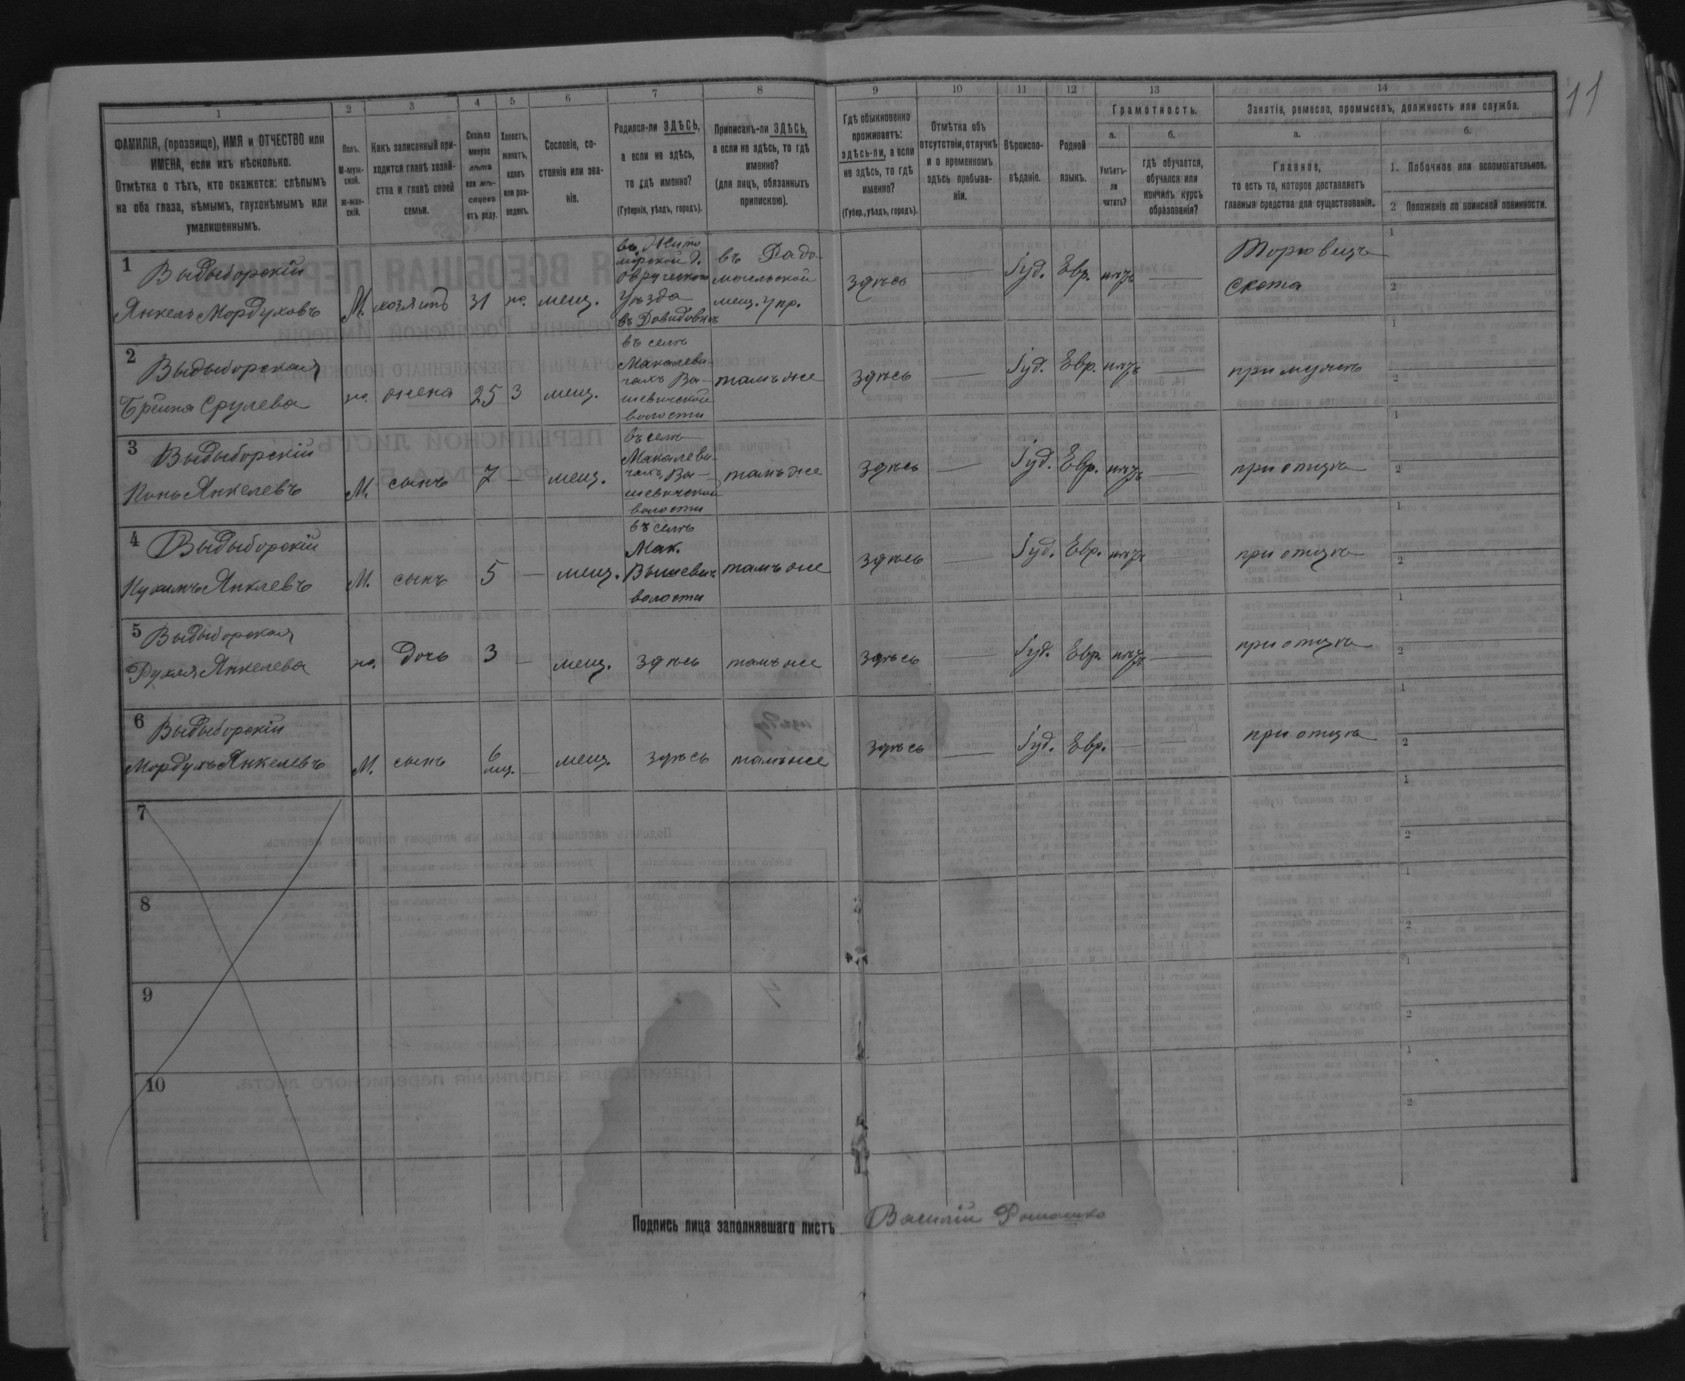 11
1 2 3 4 5 6 7 8 9 10 11 12 13 14
ФАМИЛІЯ, (прозвище), ИМЯ и ОТЧЕСТВО или
ИМЕНА, если ихъ нѣсколько.
Отмѣтка о тѣхъ, кто окажется: слѣпымъ
на оба глаза, нѣмымъ, глухонѣмымъ или
умалишеннымъ.
Полъ.
М-муж-
ской.
Ж-жен-
скій.
Какъ записанный при-
ходится главѣ хозяй-
ства и главѣ своей
семьи.
Сколько
минуло
лѣтъ
или мѣ-
сяцевъ
отъ роду.
Холостъ,
женатъ,
вдовъ
или раз-
веденъ.
Сословіе, со-
стояніе или зва-
ніе.
Родился-ли ЗДѢСЬ,
а если не здѣсь,
то гдѣ именно?
(Губернія, уѣздъ, городъ).
Приписанъ-ли ЗДѢСЬ,
а если не здѣсь, то гдѣ
именно?
(для лицъ, обязанныхъ
припискою).
Гдѣ обыкновенно
проживаетъ:
здѣсь-ли, а если
не здѣсь, то гдѣ
именно?
(Губер., уѣздъ, городъ).
Отмѣтка объ
отсутствіи, отлучкѣ
и о временномъ
здѣсь пребыва-
ніи.
Вѣроиспо-
вѣданіе.
Родной
языкъ.
Грамотность.
а.
Умѣетъ-
ли
читать?
б.
гдѣ обучается,
обучался или
кончилъ курсъ
образованія?
Занятіе, ремесло, промыселъ, должность или служба.
а.
Главное,
то есть то, которое доставляетъ
главныя средства для существованія.
б.
1. Побочное или вспомогательное.
2 Положеніе по воинской повинности.
1 Выдыборскій
Янкель Мордуховъ
М. хозяинъ 31 ж. мещ.
въ Жито
мірской г.
Овручскаго
Уѣзда
въ Давидовк
въ Радо
мысльской
мещ. упр.
здѣсь — Іуд. Евр. нѣтъ —
Торговецъ
скота
1
2
2 Выдыборская
Срулева
ж. жена 25 З мещ.
въ селѣ
волости
тамъ же здѣсь — Іуд. Евр. нѣтъ — при мужѣ
1
2
3 Выдыборскій
Янкелевъ
М. сынъ 7 — мещ.
въ селѣ
волости
тамъ же здѣсь — Іуд. Евр. нѣтъ — при отцѣ
1
2
4 Выдыборскій
Нухимъ Янклевъ
М. сынъ 5 — мещ.
въ селѣ
Мак.
волости
тамъ же здѣсь — Іуд. Евр. нѣтъ — при отцѣ
1
2
5 Выдыборская
Рухля Янкелева
ж. дочь 3 — мещ. здѣсь тамъ же здѣсь — Іуд. Евр. нѣтъ — при отцѣ
1
2
6 Выдыборскій
Мордухъ Янкелевъ
М. сынъ 6 мц. — мещ. здѣсь тамъ же здѣсь — Іуд. Евр. — — при отцѣ
1
2
7
1
2
8
1
2
9
1
2
10
1
2
Подпись лица заполнявшаго листъ Василій